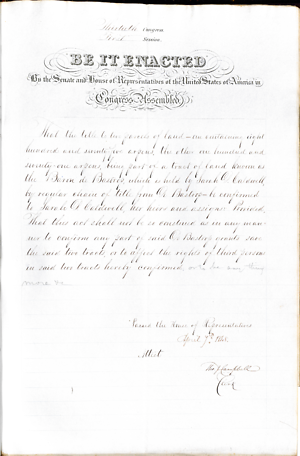 Thirtieth Congress
First Session
BE IT ENACTED
By the Senate and House of Representatives of the United States of America in
Congress Assembled,
That the title to two parcels of land - one containing eight
hundred and twenty four arpens, the other one hundred and
seventy one arpens being part of a tract of land known as
the "Baron de Bastrop which is held by Sarah D. Caldwell
by regular chain of title from De Bastrop be confirmed
to Sarah D. Caldwell, her heirs and assigns Provided,
That this act shall not be so construed as in any man-
ner to confirm any part of said De Bastrop grants save
the said two tracts, or to affect the rights of third persons
in said two tracts hereby confirmed,
Passed the House of Representatives
April 7th 1848.
Attest
Tho J Campbell
Clerk